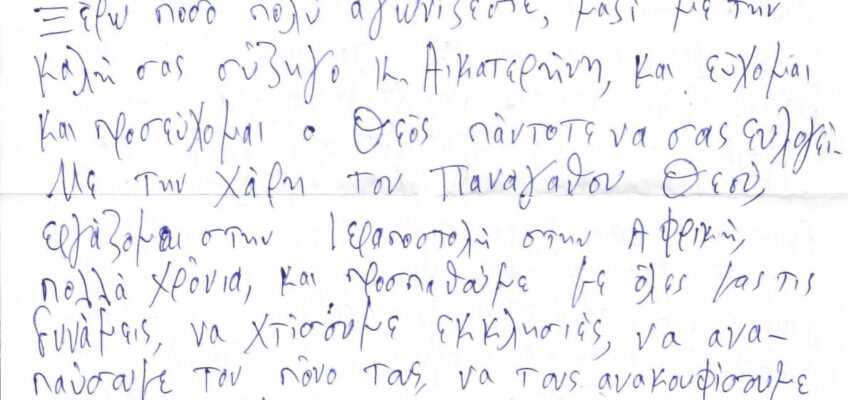 Ξέρω πόσο πολύ αγωνίζεστε, μαζί με την
καλή σας σύζηγο κ. Αικατερήνη, και εύχομαι
και προσεύχομαι ο Θεός πάντοτε να σας ευλογεί.
Με την χάρη του Παναγάθου Θεού,
εργάζομαι στην Ιεραποστολή στην Αφρική,
πολλά χρόνια, και προσπαθούμε με όλες μας τις
δυνάμεις, να χτίσουμε εκκλησιές, να ανα-
παύσουμε τον πόνο τους, να τους ανακουφίσουμε